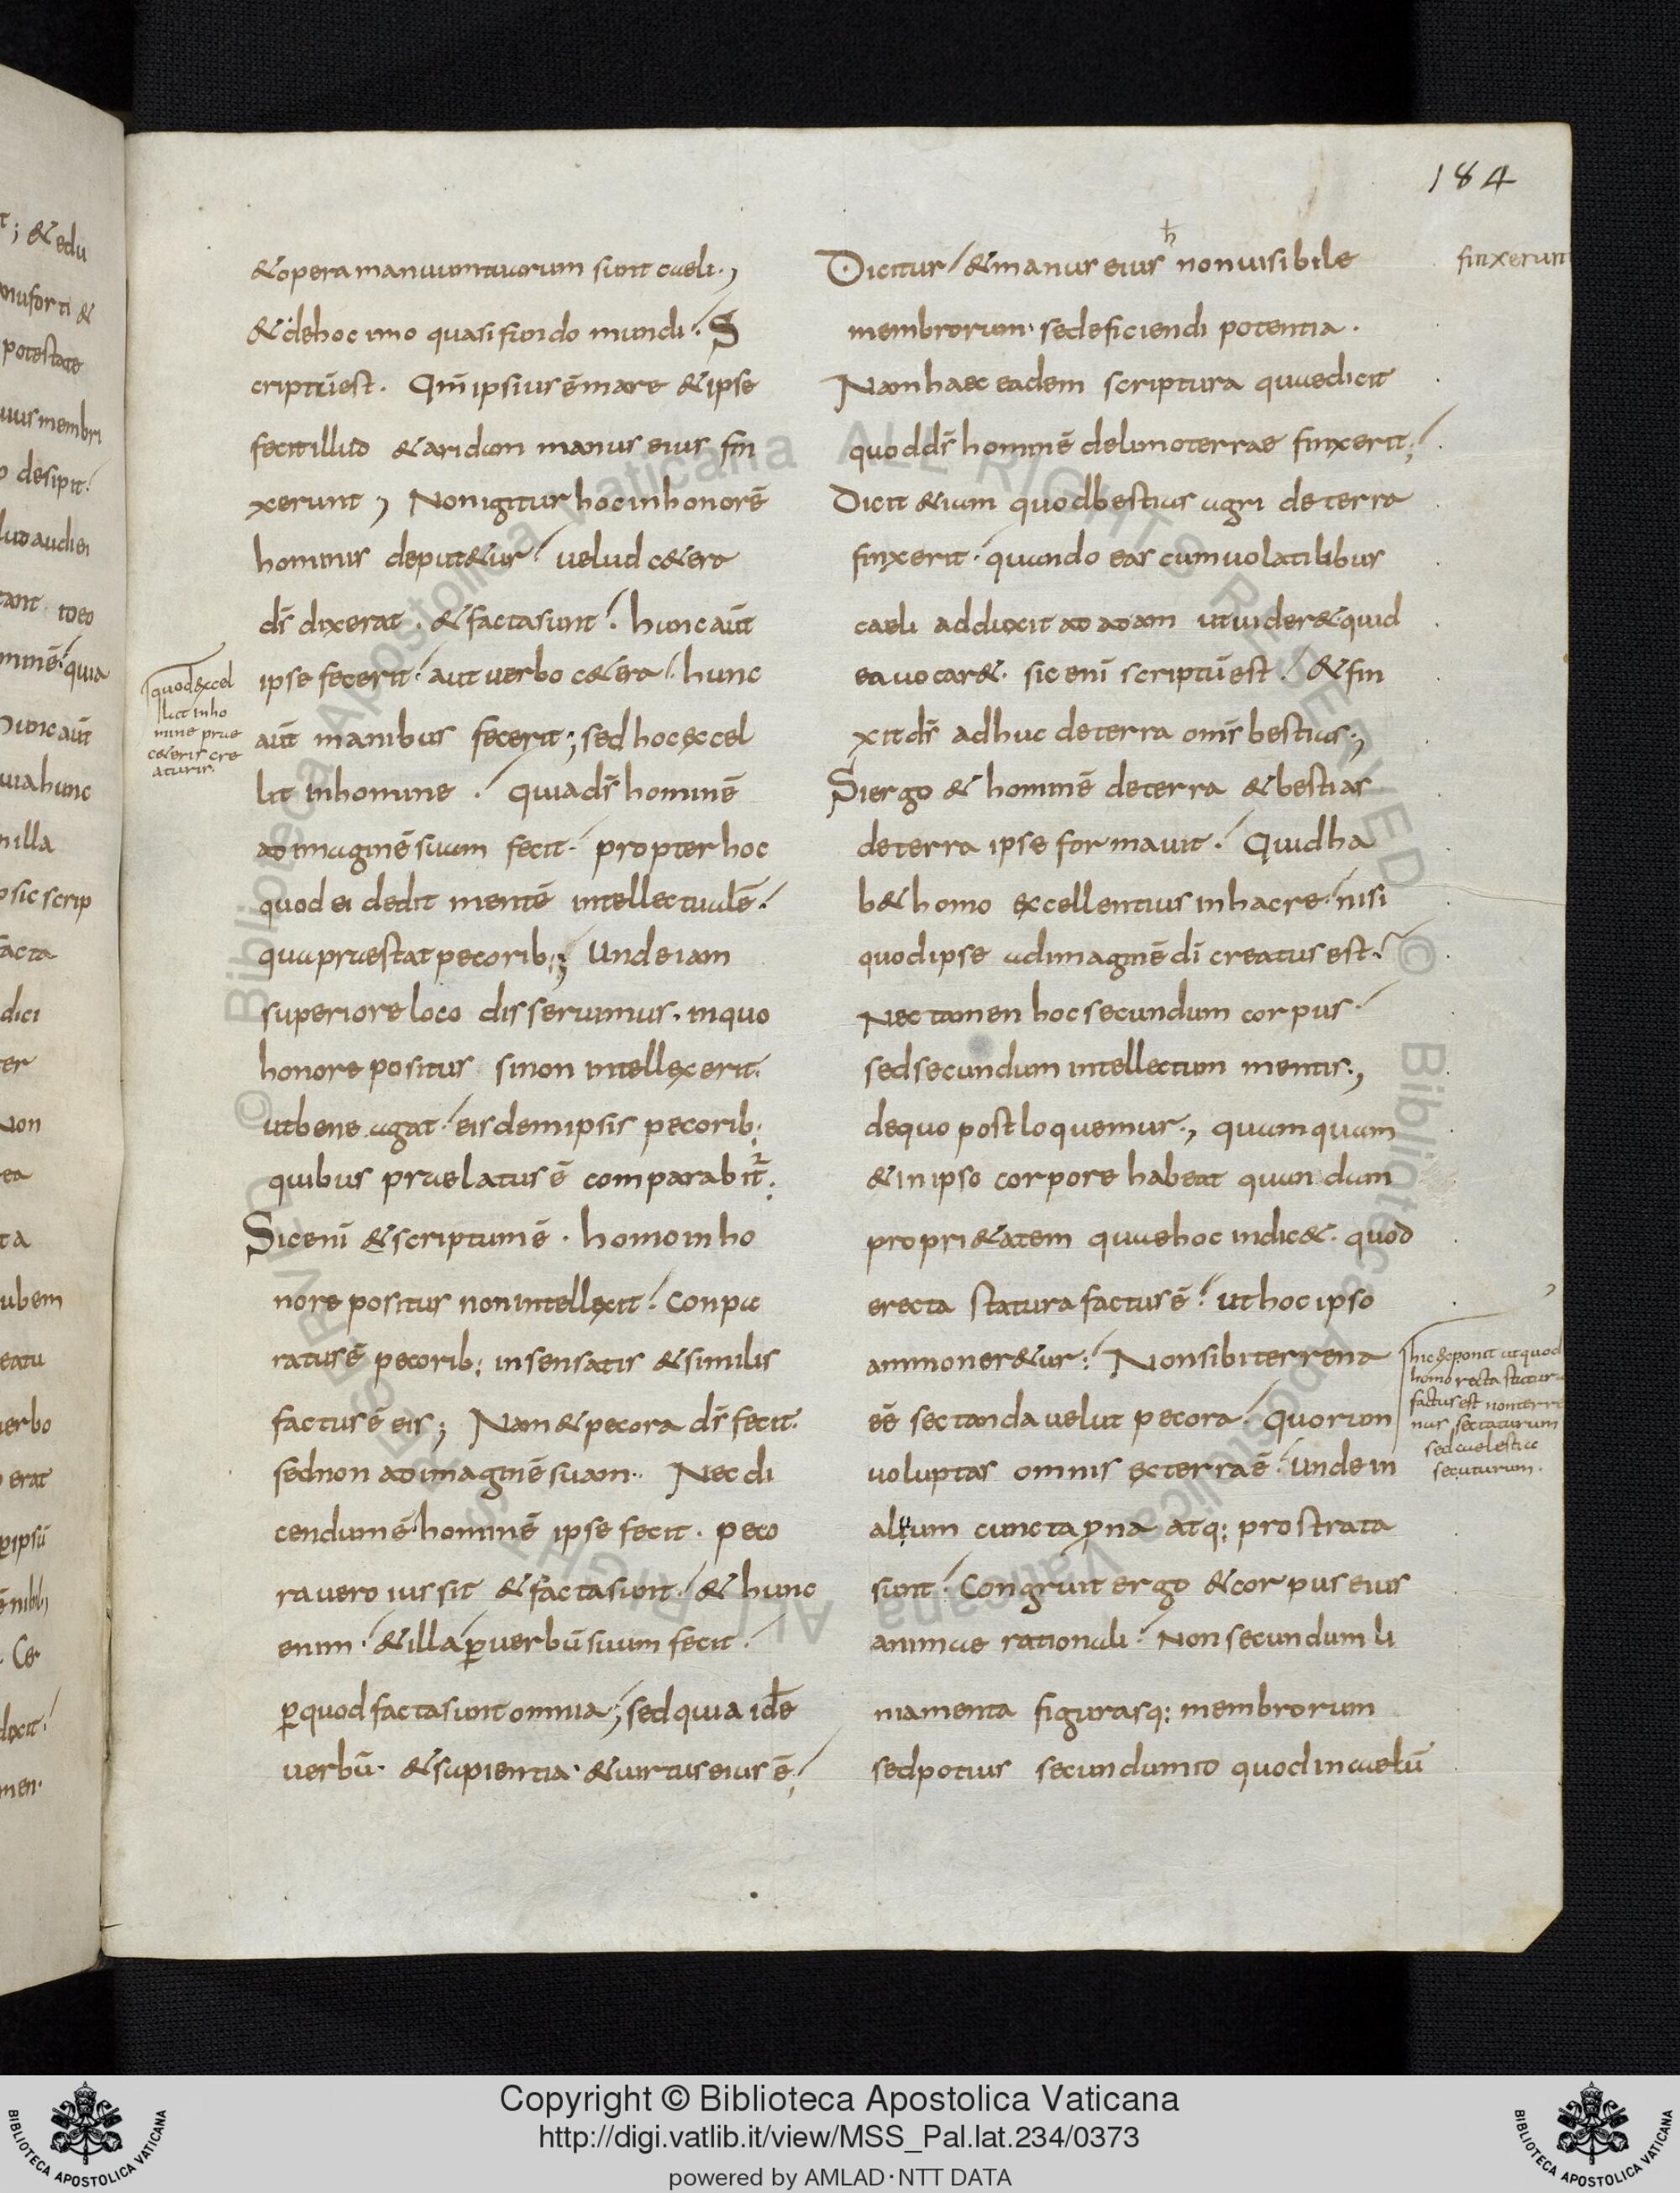 184
& opera manuum tuarum sunt caeli.,
& de hoc imo quasi fundo mundi. S
criptū est. Qm̄ ipsius ē mare & ipse
fecit illud & aridam manus eius fin
xerunt, Non igitur hoc in honorē
hominis deput&ur velud c&era
dš dixerat. & facta sunt. hunc aūt
ipse fecerit. aut verbo c&era. hunc
aūt manibus fecerit; sed hoc excel
lit in homine . quia dš hominē
ad imaginē suam fecit. propter hoc
quod ei dedit mentē intellectualē.
qua praestat pecorib:; Unde iam
superiore loco disseruimus. in quo
honore positus si non intellexerit.
ut bene agat. eisdem ipsis pecorib:
quibus praelatus ē comparabit̄;
Sic enī & scriptum ē. homo in ho
nore positus non intellexit. Conpa
ratus ē pecorib: insensatis & similis
factus ē eis; Nam & pecora dš fecit.
sed non ad imaginē suam. Nec di
cendum ē. hominē ipse fecit. peco
ra vero iussit & facta sunt. & hunc
enim. & illa ꝑ verbū suum fecit.
ꝑ quod facta sunt omnia; sed quia idē
verbū. & sapientia. & virtus eius ē;
quod excel
lit in ho
mine prae
c&eris cre
aturis.
Dicitur / & manus eius ħ non visibile
membrorum. sed eficiendi potentia.
Nam haec eadem scriptura quae dicit
quod dš hominē de limo terrae finxerit;
Dicit & iam quod bestias agri de terra
finxerit. quando eas cum volatilibus
caeli adduxit ad adam ut vider& quid
ea vocar&. sic enī scriptū est. & fin
xit dš adhuc de terra omīs bestias.,
Si ergo & hominē de terra & bestias
de terra ipse formavit. Quid ha
b& homo excellentius in hac re. nisi
quod ipse ad imaginē dī creatus est.
Nec tamen hoc secundum corpus.
sed secundum intellectum mentis.,
de quo post loquemur., quamquam
& in ipso corpore habeat quandam
propri&atem quae hoc indic&. quod
erecta statura factus ē. ut hoc ipso
ammoner&ur. Non sibi terrena
eē sectanda velut pecora. Quorum
voluptas omnis ex terra ē. unde in
alvum cuncta prna atq: prostrata
sunt. Congruit ergo & corpus eius
animae rationali. Non secundum li
niamenta figurasq: membrorum
sed potius secundum id quod in caelū
finxerunt
hic exponit ut quod
homo recta statura
factus est non terre
nas sectaturum
sed caelestia
secuturum.
Copyright © Biblioteca Apostolica Vaticana
http://digi.vatlib.it/view/MSS_Pal.lat.234/0373
powered by AMLAD·NTT DATA
BIBLIOTECA APOSTOLICA VATICANA
BIBLIOTECA APOSTOLICA VATICANA